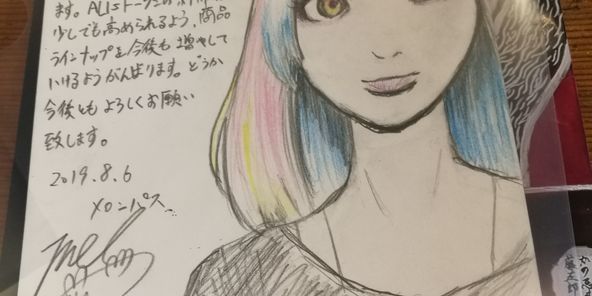 ます。ALISトークンの
少しでも高められるよう、商品
ラインナップを今後も増やして
いけるようがんばります。どうか
今後ともよろしくお願い
致します。
2019.8.6
メロンパス